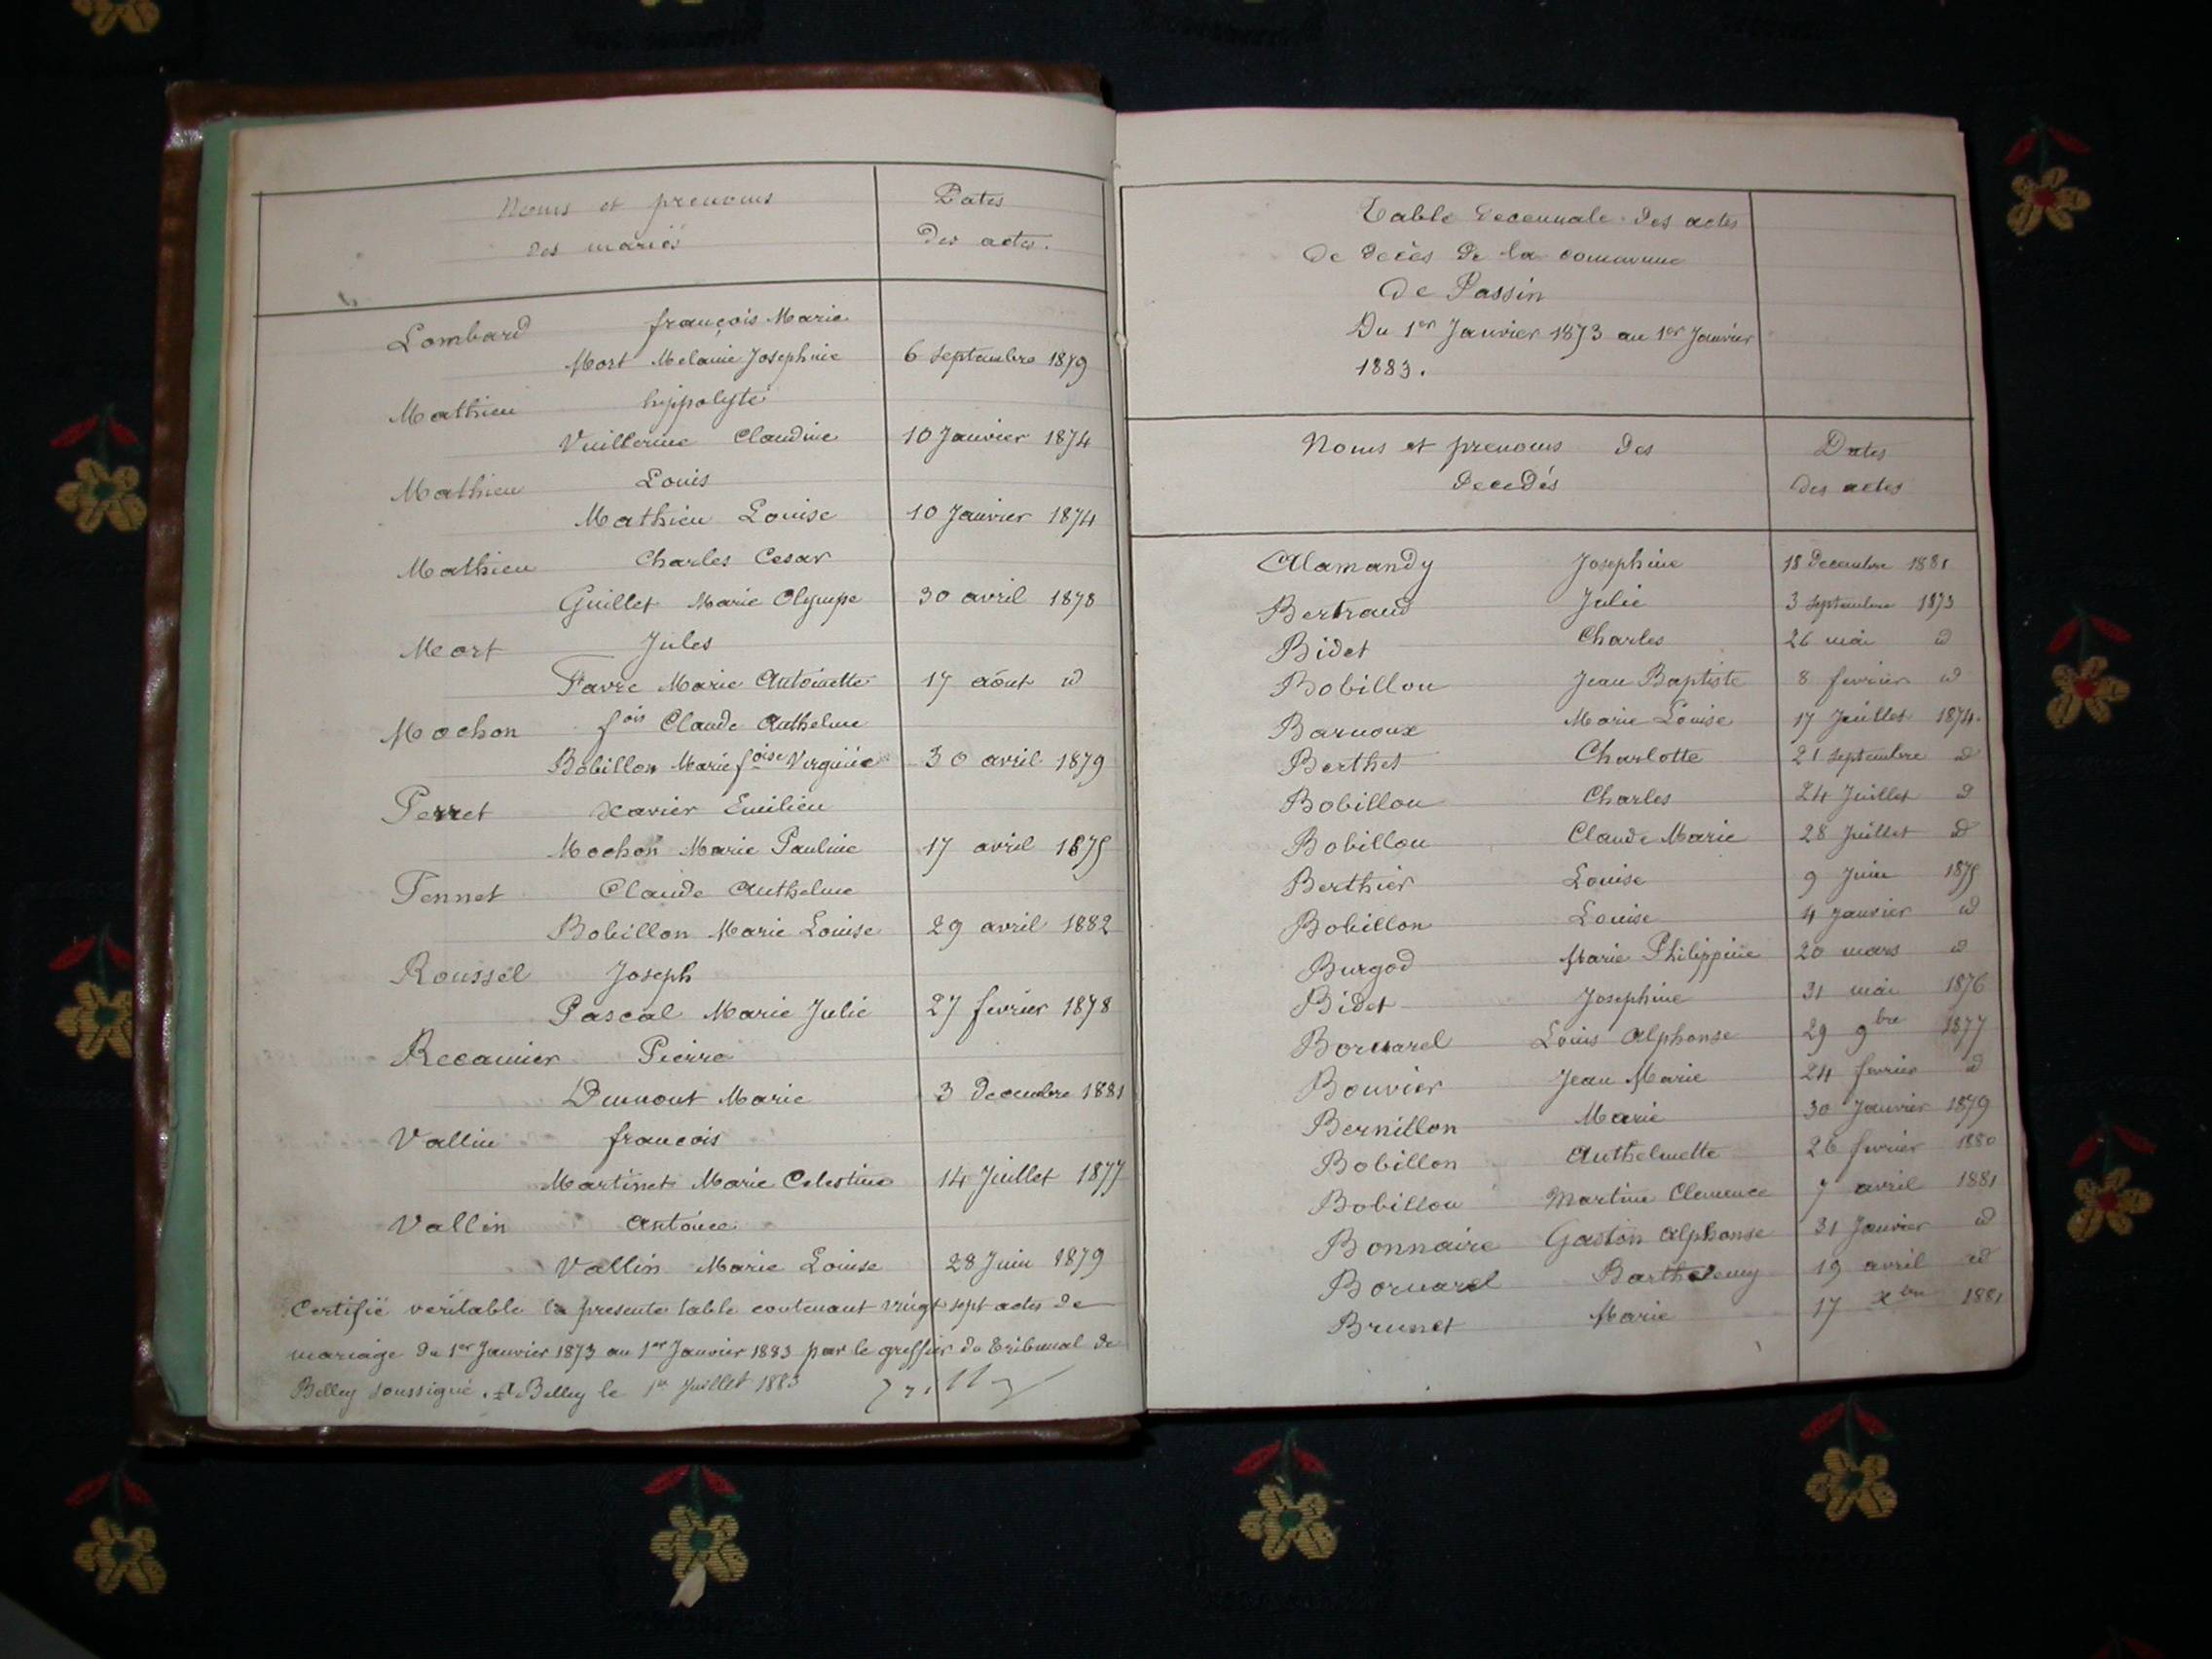 Noms et prenoms
des mariés
Dates
des actes.
Lombard françois Marie
Mort Melanie Josephine 6 Septembre 1879
Mathieu hippolyte
Vuillerme Claudine 10 Janvier 1874
Mathieu Louis
Mathieu Louise 10 Janvier 1874
Mathieu Charles Cesar
Guillet Marie Olympe 30 avril 1878
Mort Jules
Favre Marie Antoinette 17 août id
Mochon fois Claude Anthelme
Bobillon Marie foise Virginie 30 avril 1879
Perret Xavier Emilien
Mochon Marie Pauline 17 avril 1875
Pennet Claude Anthelme
Bobillon Marie Louise 29 avril 1882
Roussel Joseph
Pascal Marie Julie 27 fevrier 1878
Recamier Pierre
Dumont Marie 3 Decembre 1881
Vallin francois
Martinet Marie Celestine 14 Juillet 1877
Vallin Antoine
Vallin Marie Louise 28 Juin 1879
Certifié veritable la presente table contenant vingt sept actes de
mariage du 1er Janvier 1873 au 1er Janvier 1883 par le greffier du Tribunal de
Belley soussigné. A Belley le 1er Juillet 1883
Table Decennale des actes
de décès de la commune
de Passin
Du 1er Janvier 1873 au 1er Janvier
1883.
Noms et prenoms des
Decedés
Dates
des actes
Alamandy Josephine 18 Decembre 1881
Bertrand Julie 3 Septembre 1873
Bidet Charles 26 mai id
Bobillon Jean Baptiste 8 fevrier id
Barnoux Marie Louise 17 Juillet 1874.
Berthet Charlotte 21 Septembre id
Bobillon Charles 24 Juillet id
Bobillon Claude Marie 28 Juillet id
Berthier Louise 9 Juin 1875
Bobillon Louise 4 Janvier id
Burgod Marie Philippine 20 mars id
Bidet Josephine 31 mai 1876
Bornarel Louis Alphonse 29 9bre 1877
Bouvier Jean Marie 24 fevrier id
Bernillon Marie 30 Janvier 1879
Bobillon Anthelmette 26 fevrier 1880
Bobillon Martine Clemence 7 avril 1881
Bonnaire Gaston Alphonse 31 Janvier id
Bornarel Barthelemy 19 avril id
Brunet Marie 17 Xbre 1881